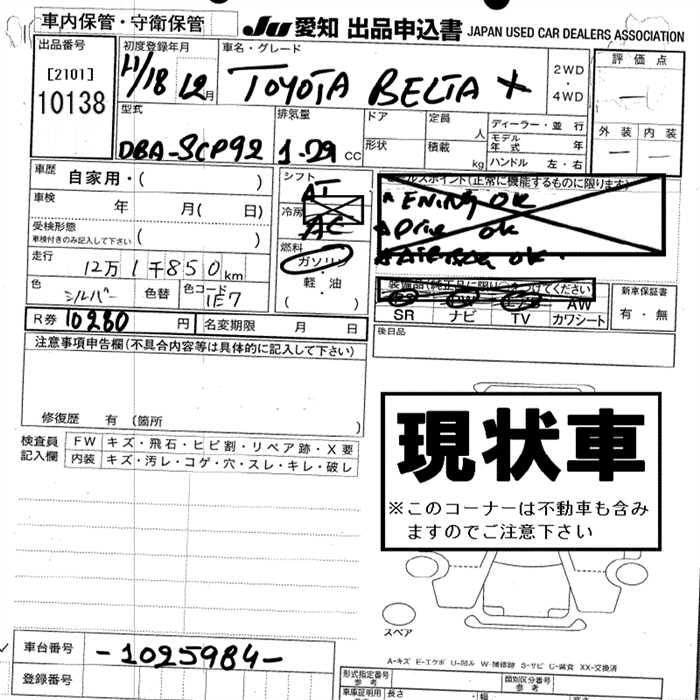 車内保管・守衛保管
JU 愛知 出品申込書 JAPAN USED CAR DEALERS ASSOCIATION
出品番号
[2101]
10138
初度登録年月
H/18 12月
車名・グレード
TOYOTA BELTA X
2WD
・
4WD
評価点
—
外装 内装
— —
型式
DBA-SCP92
排気量
1-29 CC
ドア
定員 人
形状
積載 kg
ディーラー・並行
モデル年式 年
ハンドル 左・右
車歴 自家用・( )
車検 年 月( 日)
受検形態
車検付きのみ記入して下さい ( )
走行 12万1千850km
色 シルバー 色替 色コード 1E7
シフト
AT
冷房
AC
燃料
ガソリン
・
軽・油
( )
セールスポイント(正常に機能するものに限ります)
OK
OK
OK
装備品(純正品に限り○をつけてください)
AW
SR ナビ TV カワシート
新車保証書
有・無
後日品
R券 10280 円 名変期限 月 日
注意事項申告欄(不具合内容等は具体的に記入して下さい)
修復歴 有 (箇所 )
検査員記入欄
FW キズ・飛石・ヒビ割・リペア跡・X要
内装 キズ・汚レ・コゲ・穴・スレ・キレ・破レ
現状車
※このコーナーは不動車も含み
ますのでご注意下さい
スペア
A-キズ E-エクボ U-凹ル W-補修跡 S-サビ C-腐食 XX-交換済
車台番号 -1025984-
登録番号
形式指定番号
参考
類別区分番号
参考
車庫証明用
長さ
幅
高さ